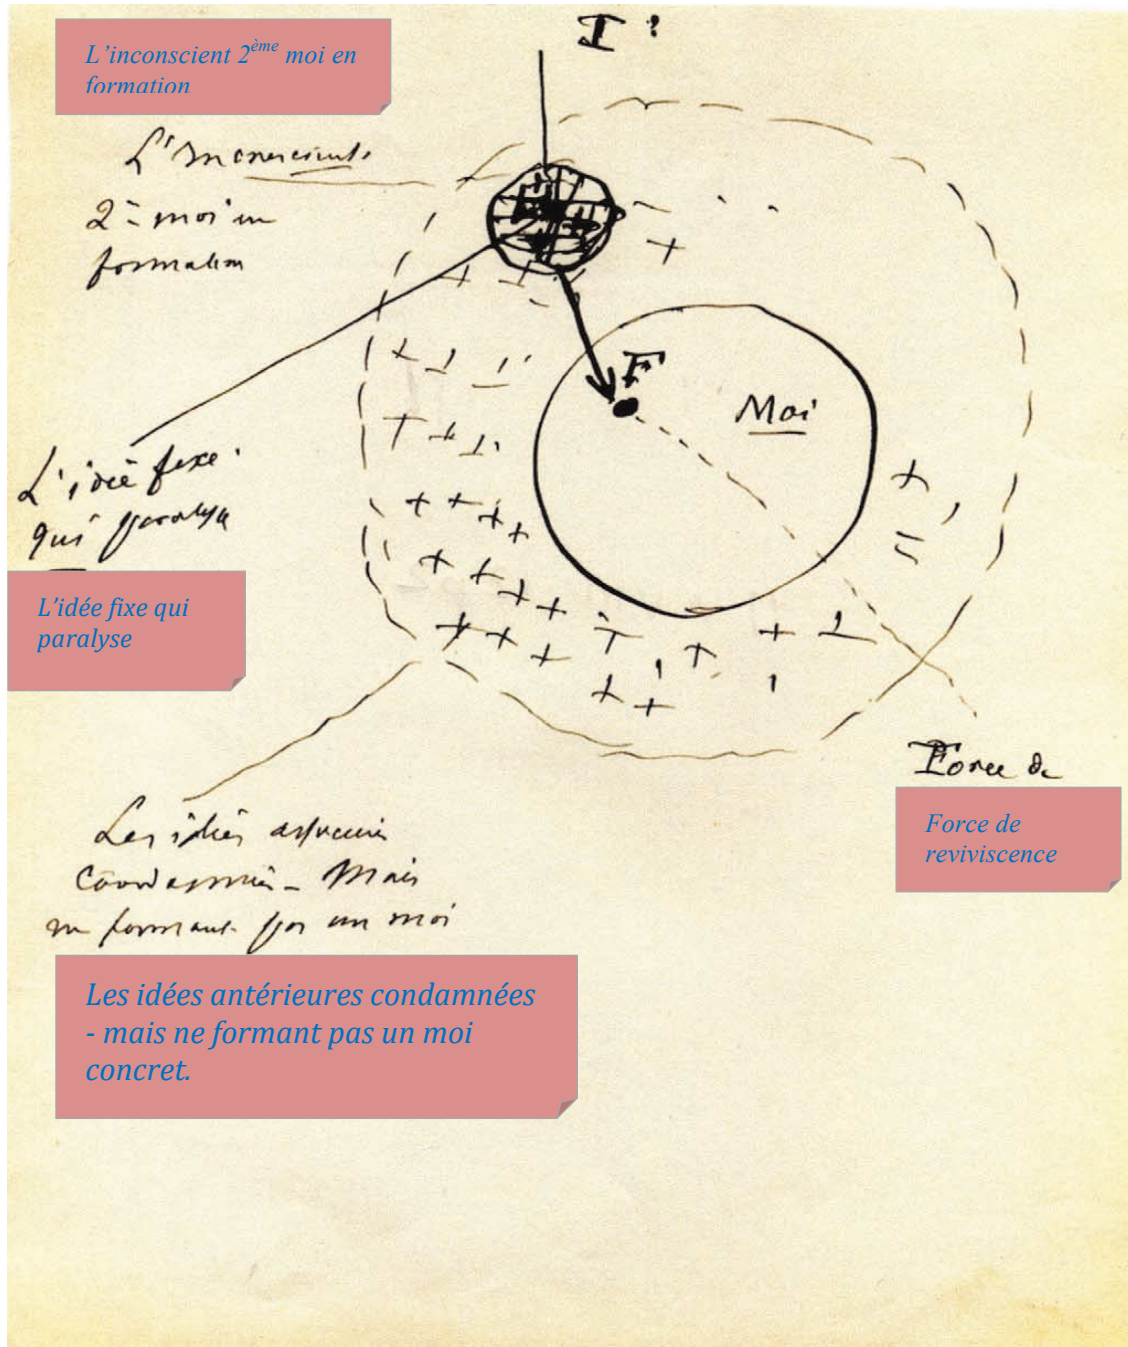 L'inconscient 2ème moi en
formation
I ?
L'inconscient
2e moi en
formation
F
Moi
L'idée fixe
qui paralyse
L'idée fixe qui
paralyse
Force de
Force de
reviviscence
Les idées
Mais
ne formant pas un moi
Les idées antérieures condamnées
- mais ne formant pas un moi
concret.